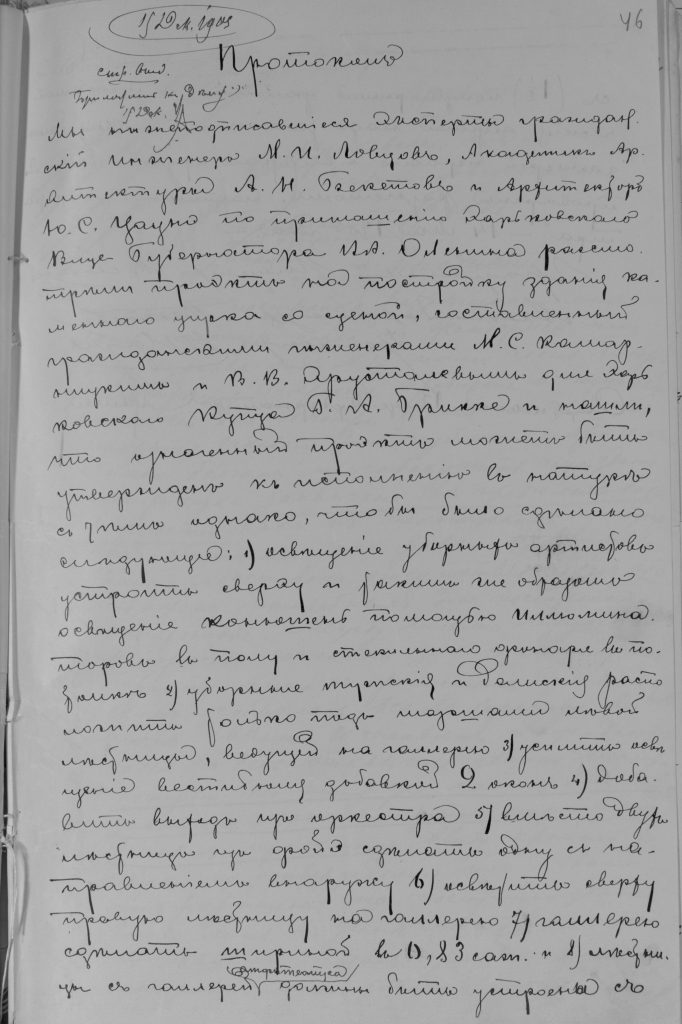 15 Дек. 1903
46
Протоколъ
15 Дек.
Мы нижеподписавшіеся Эксперты граждан.
скій Инженеръ М. И. Ловцовъ, Академикъ Ар.
хитектуры А. Н. Бекетовъ и Архитекторъ
Ю. С. Цауне по приглашенію Харьковскаго
Вице Губернатора Оленина разсмо.
трѣли проэктъ на постройку зданія ка-
меннаго цирка со сценой, составленный
гражданскими инженерами М. С. Комар-
ницкимъ и В. В. Хрусталевымъ для Харь
ковскаго Купца Г. А. Грикке и нашли,
что означенный проэктъ можетъ быть
утвержденъ къ исполненію въ натурѣ
съ тѣмъ однако, чтобы было сдѣлано
слѣдующее: 1) освѣщеніе уборныхъ артистовъ
устроить сверху и такимъ же образомъ
освѣщеніе конюшенъ помощью иллюмина.
торовъ въ полу и стекляннаго фонаря въ по-
толкѣ 2) уборныя мужскія и дамскія распо
ложить только подъ маршами лѣвой
лѣстницы, ведущей на галлерею 3) усилить освѣ
щеніе вестибюля добавкой 2 оконъ 4) доба.
вить выходъ изъ оркестра 5) вмѣсто двухъ
лѣстницъ изъ фойэ сдѣлать одну съ на-
правленіемъ внаружу 6) освѣтить сверху
правую лѣстницу на галлерею 7) галлерею
сдѣлать шириной въ 0,83 саж. и 8) лѣстни-
амфитеатра
цы съ галлерей должны быть устроены съ